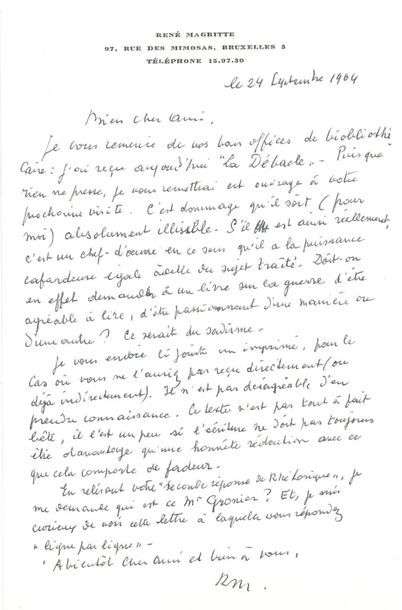 RENÉ MAGRITTE
97, RUE DES MIMOSAS, BRUXELLES 3
TÉLÉPHONE 15.97.30
le 24 Septembre 1964
Mien cher Ami,
Je vous remercie de vos bons offices de bibliothé
caire : j'ai reçu aujourd'hui "la Débacle". – Puisque
rien ne presse, je vous remettrai cet ouvrage à votre
prochaine visite. C'est dommage qu'il soit (pour
moi) absolument illisible. S'il est ainsi réellement,
c'est un chef-d'œuvre en ce sens qu'il a la puissance
cafardeuse égale à celle du sujet traité. Doit on
en effet demander à un livre sur la guerre d'être
agréable à lire, d'être passionnant d'une manière ou
d'une autre ? Ce serait du sadisme.
Je vous encore ci joint un imprimé, pour le
cas où vous ne l'auriez pas reçu directement (ou
déjà indirectement). Il n'est pas désagréable d'en
prendre connaissance. Le texte n'est pas tout à fait
bête, il l'est un peu si l'écriture ne doit pas toujours
être davantage qu'une honnête rédaction avec ce
que cela comporte de fadeur.
En relisant votre "seconde réponse de Rhétorique", je
me demande qui est ce Mr Grosjer ? Et, je suis
curieux de voir cette lettre à laquelle vous répondez
"ligne par ligne" –
A bientôt cher Ami et bien à vous,
RM.